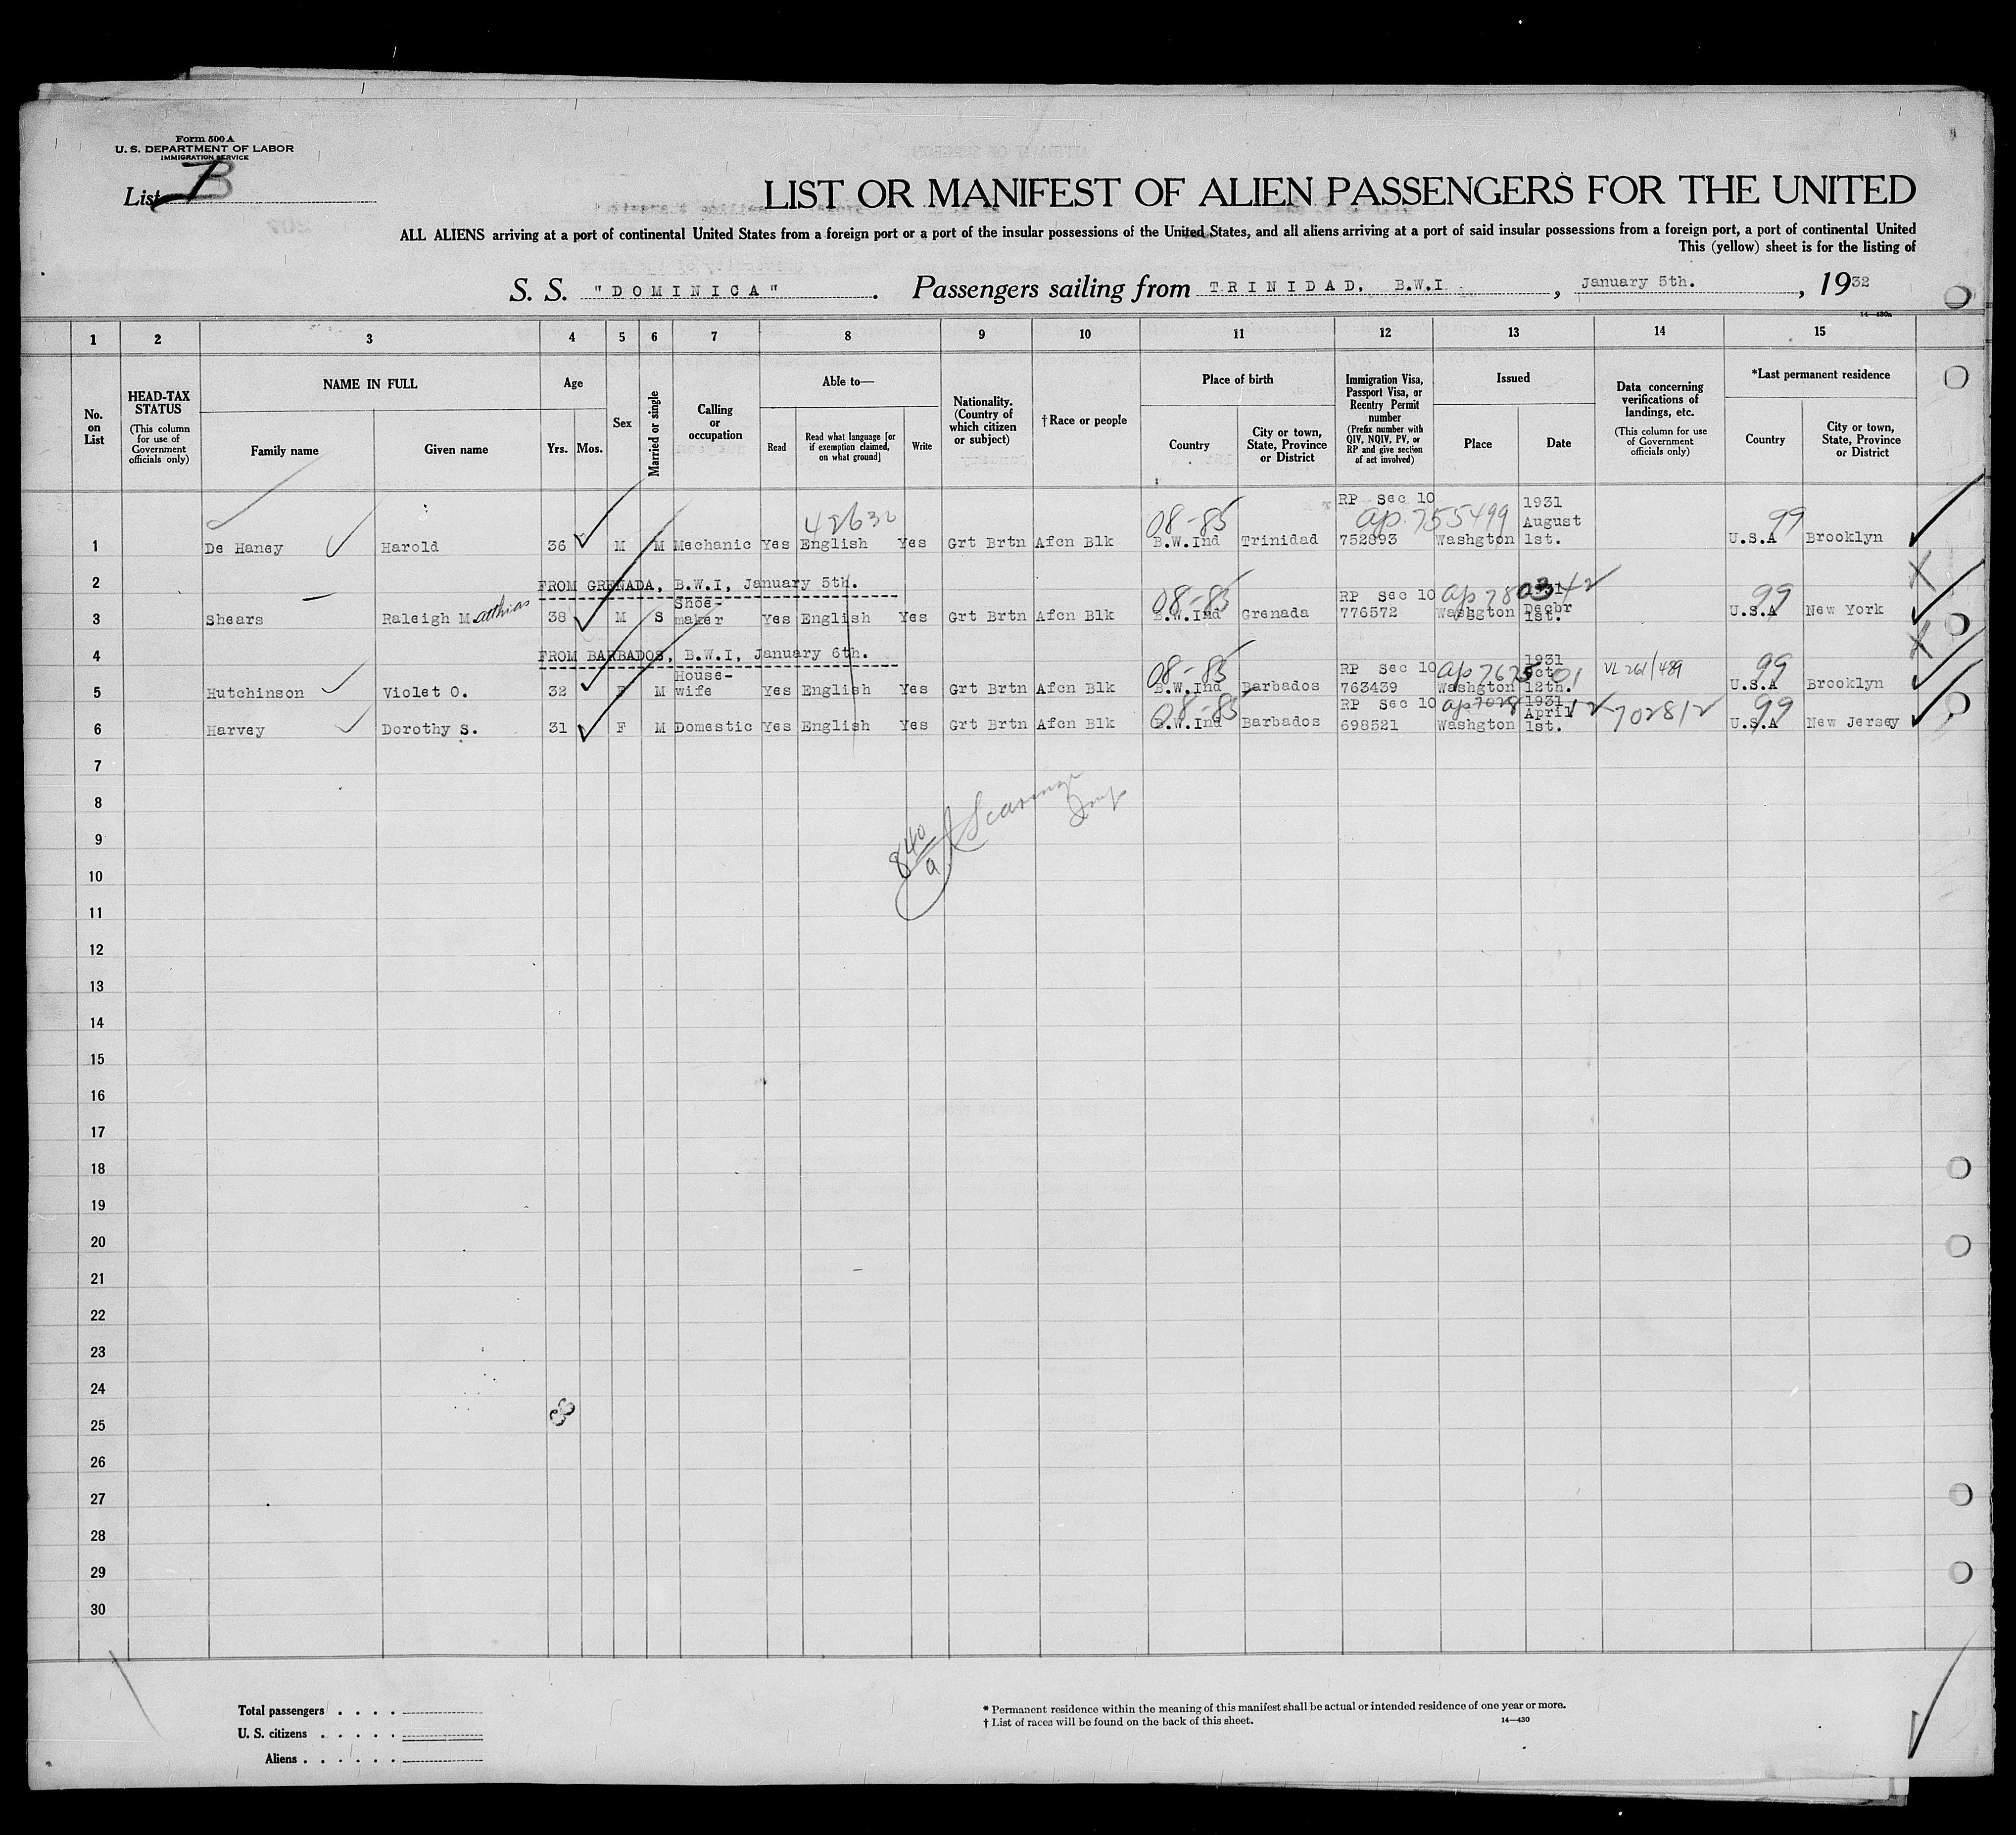 Form 500 A
U. S. DEPARTMENT OF LABOR
IMMIGRATION SERVICE
List 7
LIST OR MANIFEST OF ALIEN PASSENGERS FOR THE UNITED
ALL ALIENS arriving at a port of continental United States from a foreign port or a port of the insular possessions of the United States, and all aliens arriving at a port of said insular possessions from a foreign port, a port of continental United
This (yellow) sheet is for the listing of
S. S. "DOMINICA". Passengers sailing from TRINIDAD, B.W.I., January 5th., 1932
14—430a
1 2 3 4 5 6 7 8 9 10 11 12 13 14 15
No. on List
HEAD-TAX STATUS (This column for use of Government officials only)
NAME IN FULL
Family name
Given name
Age
Yrs. Mos.
Sex
Married or single
Calling or occupation
Able to—
Read
Read what language [or if exemption claimed, on what ground]
Write
Nationality. (Country of which citizen or subject)
† Race or people
Place of birth
Country
City or town, State, Province or District
Immigration Visa, Passport Visa, or Reentry Permit number (Prefix number with QIV, NQIV, PV, or RP and give section of act involved)
Issued
Place
Date
Data concerning verifications of landings, etc. (This column for use of Government officials only)
*Last permanent residence
Country
City or town, State, Province or District
42632 08-85 RP Sec 10 ap. 755499 1931 August 99
1 De Haney Harold 36 M M Mechanic Yes English Yes Grt Brtn Afcn Blk B.W.Ind Trinidad 752893 Washgton 1st. U.S.A Brooklyn
2 FROM GRENADA, B.W.I, January 5th.
08-85 RP Sec 10 ap 780342 1931 99
3 Shears Raleigh Matthias 38 M S Shoe-maker Yes English Yes Grt Brtn Afcn Blk B.W.Ind Grenada 776572 Washgton Decbr 1st. U.S.A New York
4 FROM BARBADOS, B.W.I, January 6th.
08-85 RP Sec 10 1931 VL 261/489 99
5 Hutchinson Violet O. 32 F M House-wife Yes English Yes Grt Brtn Afcn Blk B.W.Ind Barbados 763439 Washgton Oct 12th. U.S.A Brooklyn
08-85 RP Sec 10 ap 702812 1931 April 702812 99
6 Harvey Dorothy S. 31 F M Domestic Yes English Yes Grt Brtn Afcn Blk B.W.Ind Barbados 698521 Washgton 1st. U.S.A New Jersey
7
8
9
840/a
10
11
12
13
14
15
16
17
18
19
20
21
22
23
24
25
26
27
28
29
30
Total passengers . . . .
U. S. citizens . . . . .
Aliens . . . . . .
* Permanent residence within the meaning of this manifest shall be actual or intended residence of one year or more.
† List of races will be found on the back of this sheet.
14—430